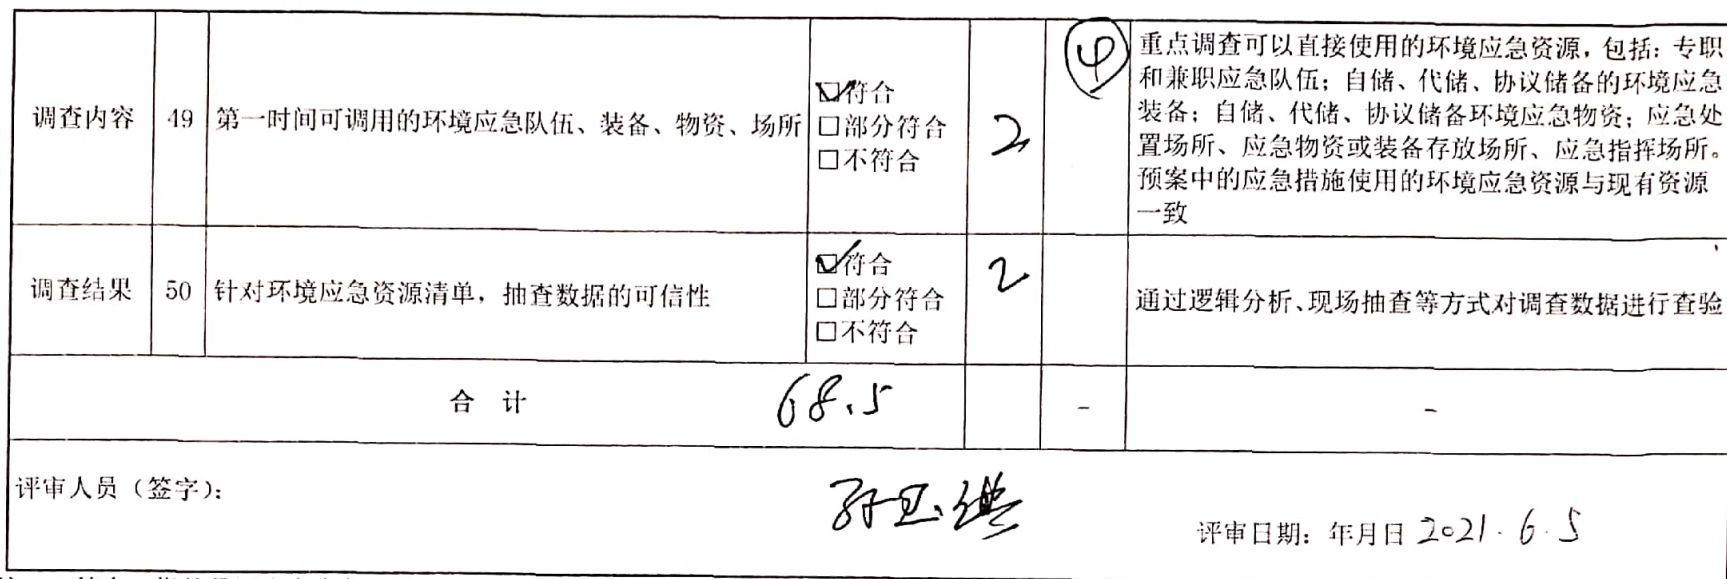 调查内容 49 第一时间可调用的环境应急队伍、装备、物资、场所
☑符合
□部分符合
□不符合
2
④
重点调查可以直接使用的环境应急资源，包括：专职
和兼职应急队伍；自储、代储、协议储备的环境应急
装备；自储、代储、协议储备环境应急物资；应急处
置场所、应急物资或装备存放场所、应急指挥场所。
预案中的应急措施使用的环境应急资源与现有资源
一致
调查结果 50 针对环境应急资源清单，抽查数据的可信性
☑符合
□部分符合
□不符合
2
通过逻辑分析、现场抽查等方式对调查数据进行查验
合 计 68.5 - -
评审人员（签字）：
评审日期：年月日 2021.6.5